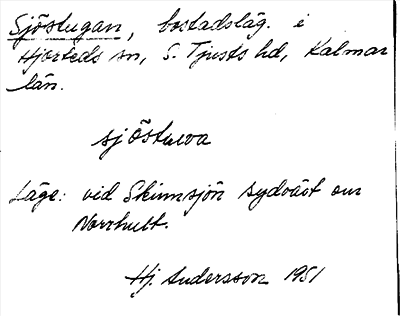 Sjöstugan, bostadsläg. i
Hjorteds sn, S. Tjusts hd, Kalmar
län.
sjöstuwa
Läge: vid Skinnsjön sydväst om
Norrhult.
Hj. Andersson 1951